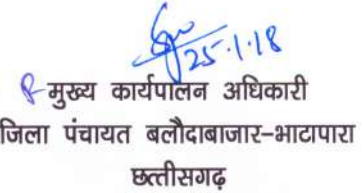 25.1.18
मुख्य कार्यपालन अधिकारी
जिला पंचायत बलौदाबाजार-भाटापारा
छत्तीसगढ़